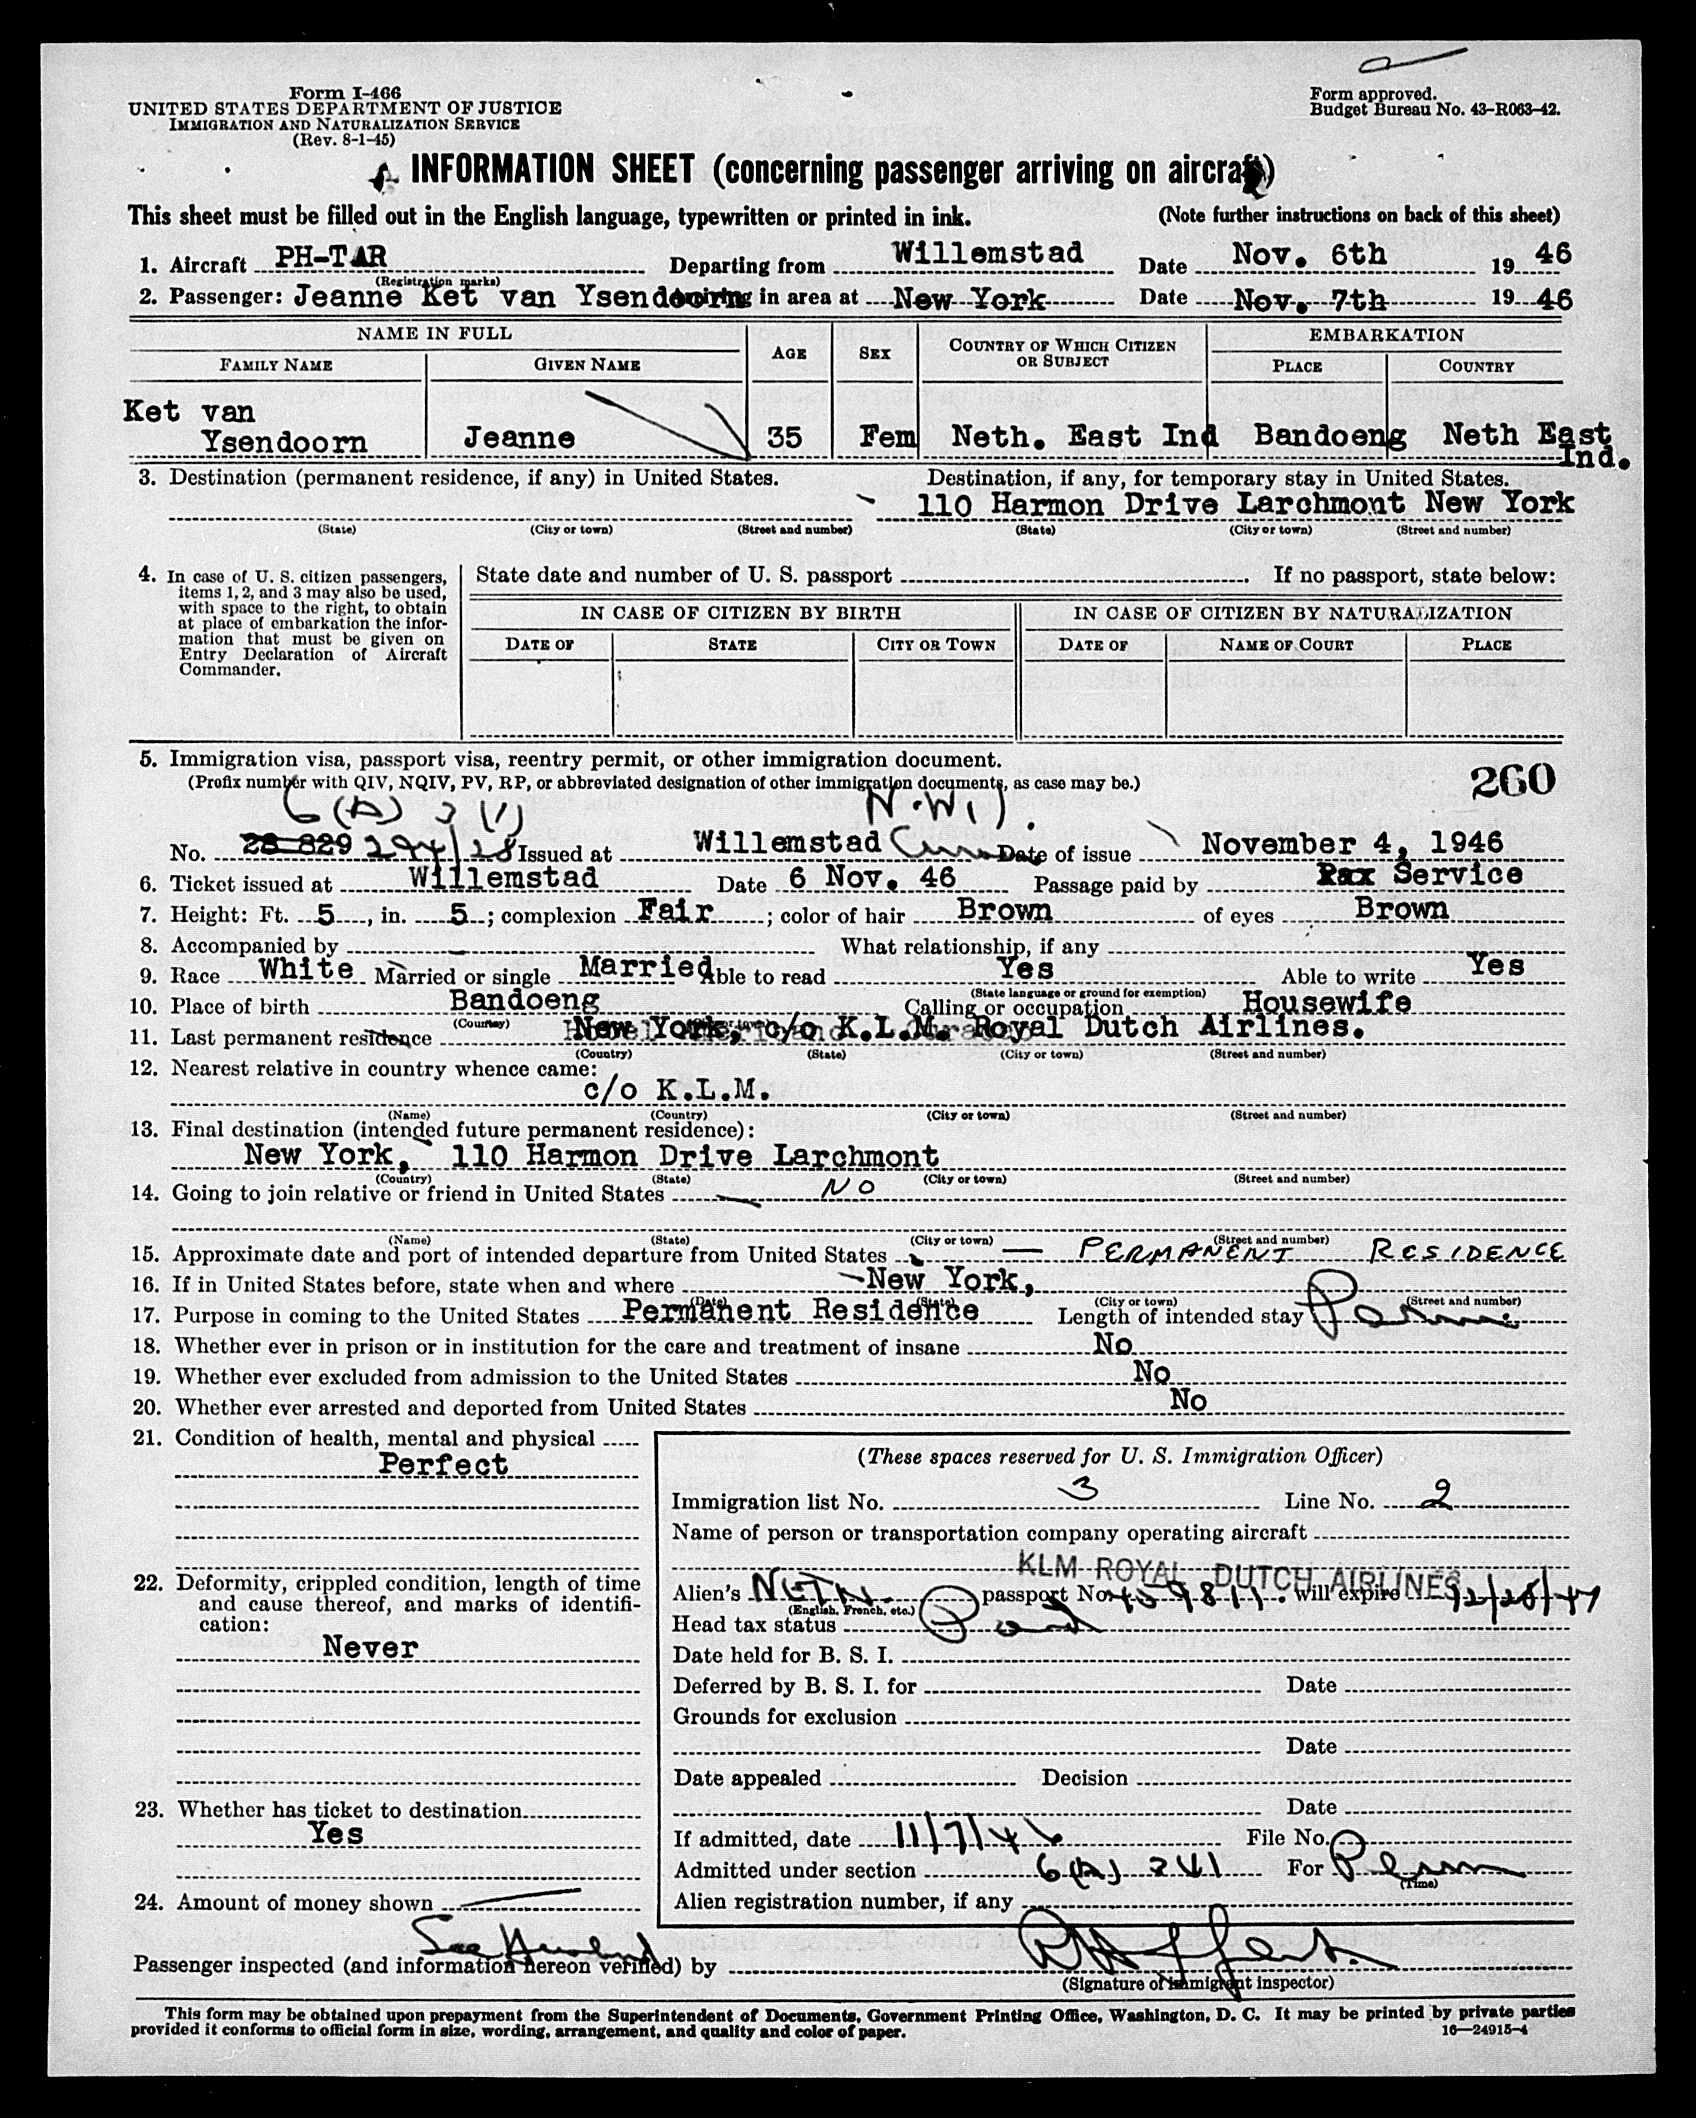 Form I-466
UNITED STATES DEPARTMENT OF JUSTICE
IMMIGRATION AND NATURALIZATION SERVICE
(Rev. 8-1-45)
Form approved.
Budget Bureau No. 43-R063-42.
INFORMATION SHEET (concerning passenger arriving on aircraft)
This sheet must be filled out in the English language, typewritten or printed in ink. (Note further instructions on back of this sheet)
1. Aircraft PH-TAR Departing from Willemstad Date Nov. 6th 1946
(Registration marks)
2. Passenger: Jeanne Ket van Ysendoorn Arriving in area at New York Date Nov. 7th 1946
NAME IN FULL AGE SEX COUNTRY OF WHICH CITIZEN OR SUBJECT EMBARKATION
FAMILY NAME GIVEN NAME PLACE COUNTRY
Ket van
Ysendoorn Jeanne 35 Fem Neth. East Ind Bandoeng Neth East
Ind.
3. Destination (permanent residence, if any) in United States. Destination, if any, for temporary stay in United States.
110 Harmon Drive Larchmont New York
(State) (City or town) (Street and number) (State) (City or town) (Street and number)
4. In case of U. S. citizen passengers,
items 1, 2, and 3 may also be used,
with space to the right, to obtain
at place of embarkation the infor-
mation that must be given on
Entry Declaration of Aircraft
Commander.
State date and number of U. S. passport If no passport, state below:
IN CASE OF CITIZEN BY BIRTH IN CASE OF CITIZEN BY NATURALIZATION
DATE OF STATE CITY OR TOWN DATE OF NAME OF COURT PLACE
5. Immigration visa, passport visa, reentry permit, or other immigration document.
(Prefix number with QIV, NQIV, PV, RP, or abbreviated designation of other immigration documents, as case may be.)
260
6(A) 3 (1) N.W.I.
No. 28 829 294/28 Issued at Willemstad Date of issue November 4, 1946
6. Ticket issued at Willemstad Date 6 Nov. 46 Passage paid by Pax Service
7. Height: Ft. 5, in. 5; complexion Fair; color of hair Brown of eyes Brown
8. Accompanied by - What relationship, if any
9. Race White Married or single Married Able to read Yes Able to write Yes
(State language or ground for exemption)
10. Place of birth Bandoeng Calling or occupation Housewife
(Country)
11. Last permanent residence New York, c/o K.L.M. Royal Dutch Airlines.
(Country) (State) (City or town) (Street and number)
12. Nearest relative in country whence came:
c/o K.L.M.
(Name) (Country) (City or town) (Street and number)
13. Final destination (intended future permanent residence):
New York, 110 Harmon Drive Larchmont
(Country) (State) (City or town) (Street and number)
14. Going to join relative or friend in United States — NO
(Name) (State) (City or town) (Street and number)
15. Approximate date and port of intended departure from United States — PERMANENT RESIDENCE
16. If in United States before, state when and where New York,
(Date) (State) (City or town) (Street and number)
17. Purpose in coming to the United States Permanent Residence Length of intended stay Perm
18. Whether ever in prison or in institution for the care and treatment of insane No
19. Whether ever excluded from admission to the United States No
20. Whether ever arrested and deported from United States No
21. Condition of health, mental and physical
Perfect
22. Deformity, crippled condition, length of time
and cause thereof, and marks of identifi-
cation:
Never
23. Whether has ticket to destination
Yes
24. Amount of money shown —
See Husband
(These spaces reserved for U. S. Immigration Officer)
Immigration list No. 3 Line No. 2
Name of person or transportation company operating aircraft
KLM ROYAL DUTCH AIRLINES
Alien's NETH. passport No. 459811. Will expire 2/28/47
(English, French, etc.)
Head tax status Paid
Date held for B. S. I.
Deferred by B. S. I. for Date
Grounds for exclusion
Date
Date appealed Decision
Date
If admitted, date 11/7/46 File No.
Admitted under section 6(A) 3 (1) For Perm
(Time)
Alien registration number, if any
Passenger inspected (and information hereon verified) by
(Signature of immigrant inspector)
This form may be obtained upon prepayment from the Superintendent of Documents, Government Printing Office, Washington, D. C. It may be printed by private parties
provided it conforms to official form in size, wording, arrangement, and quality and color of paper. 16—24915-4